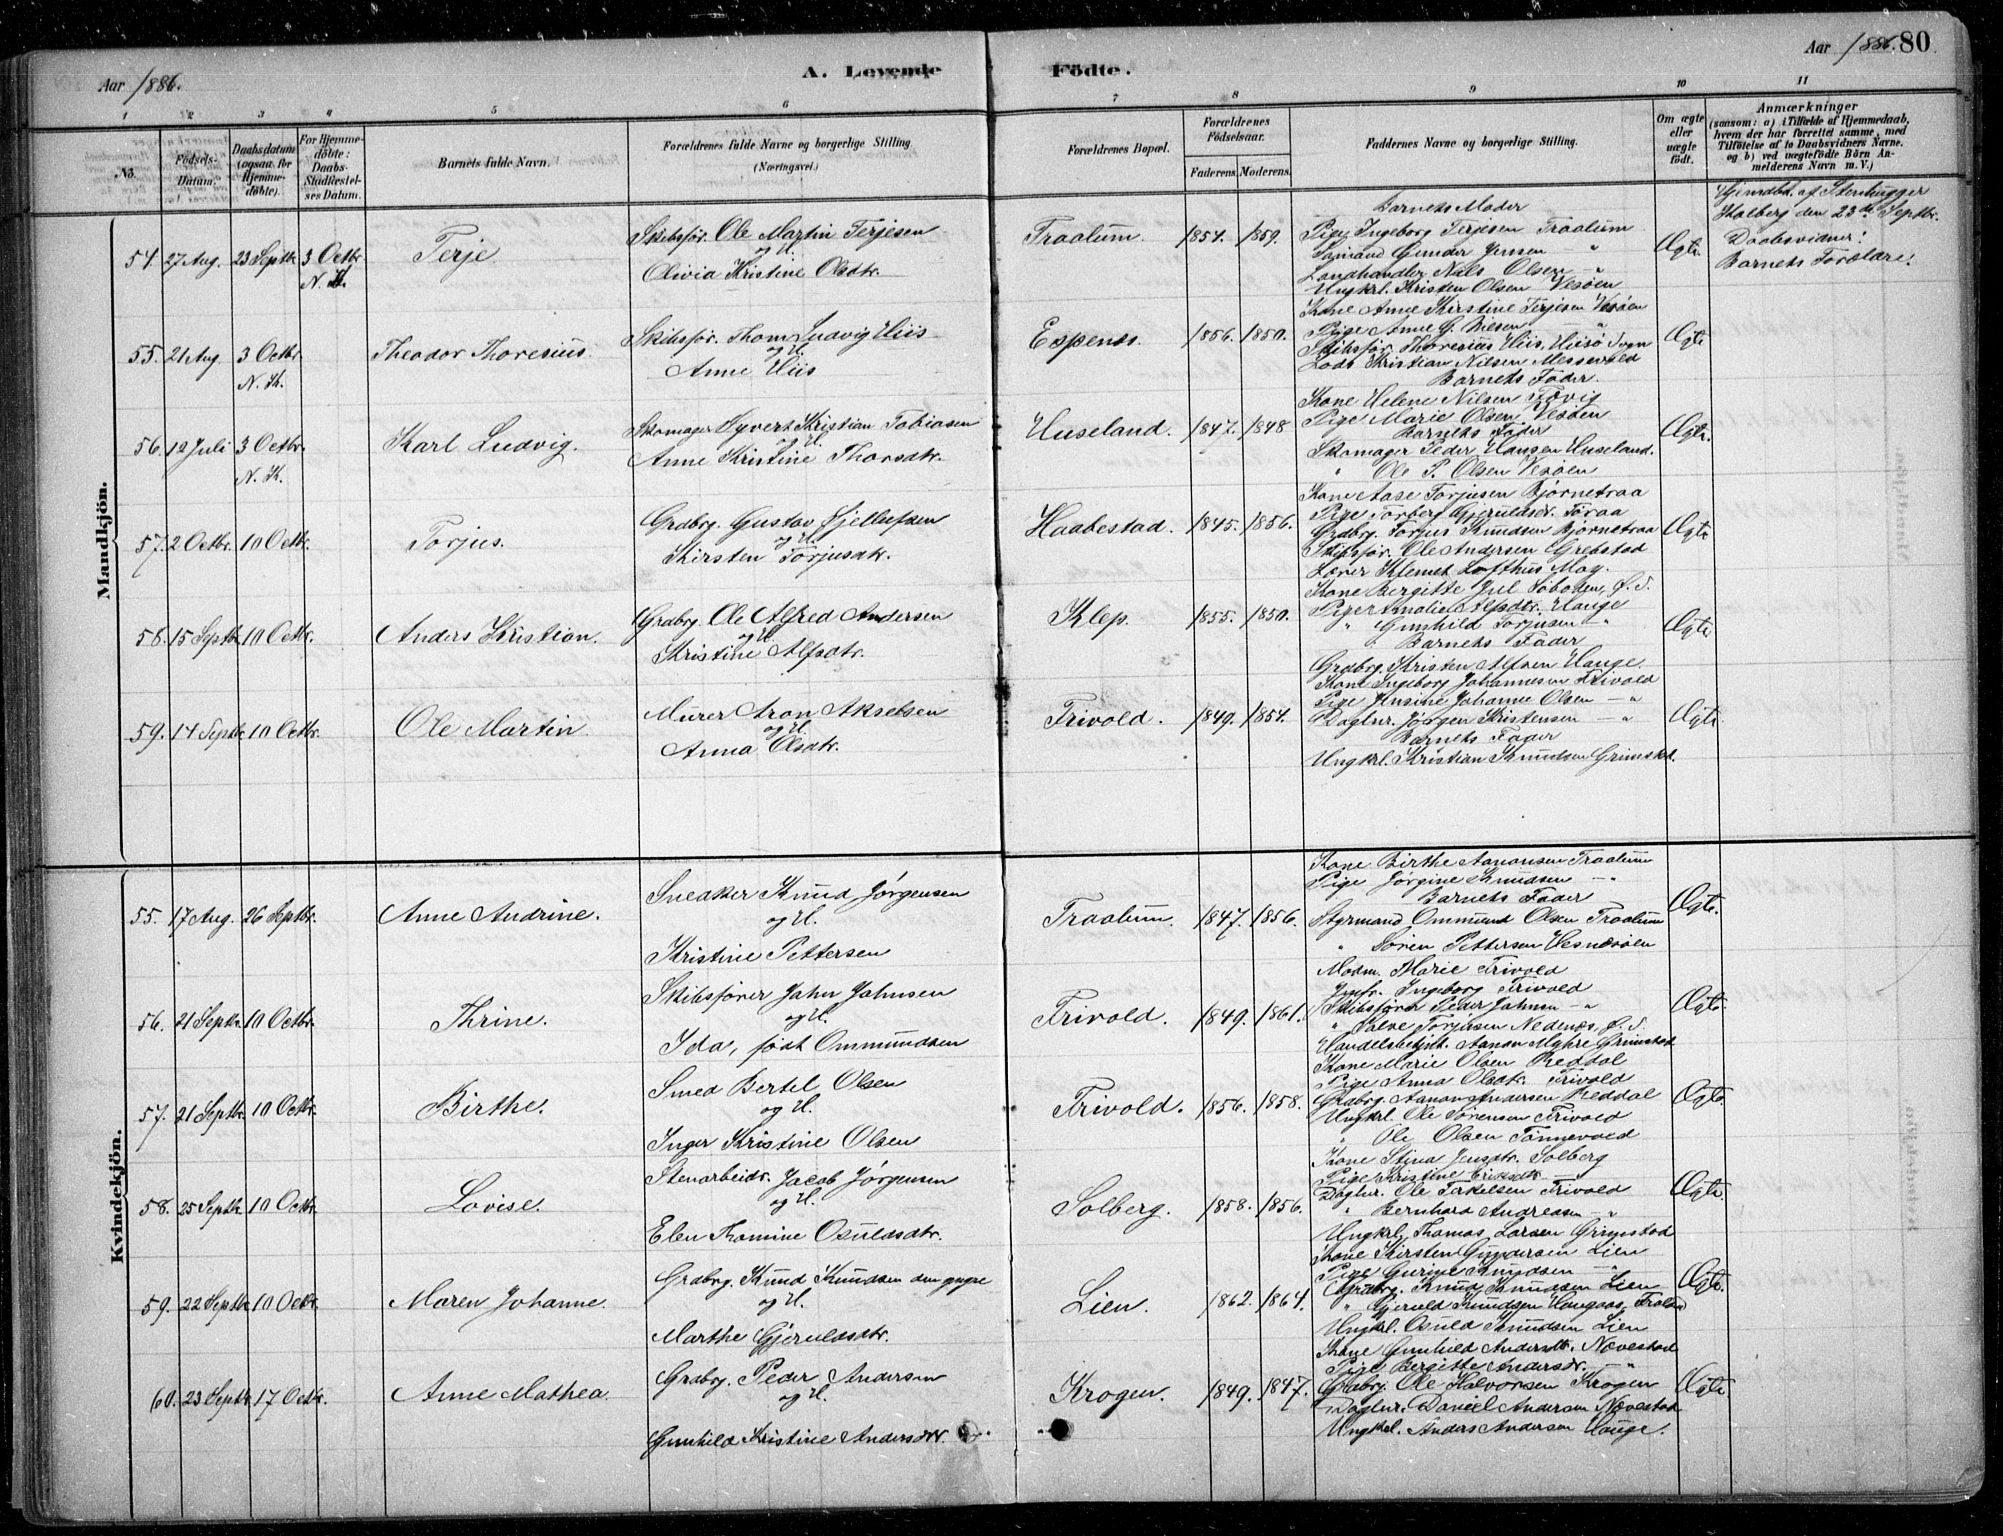 Aar 1886.
A. Levende Födte.
Aar 1886. 80
1 2 3 4 5 6 7 8 9 10 11
No.
Födsels-Datum.
Daabsdatum (ogsaa for Hjemmedöbte).
For Hjemmedöbte: Daabs-Stadfæstelses Datum.
Barnets fulde Navn.
Forældrenes fulde Navne og borgerlige Stilling (Næringsvei.)
Forældrenes Bopæl.
Forældrenes Födselsaar.
Faderens. Moderens.
Faddernes Navne og borgerlige Stilling.
Om ægte eller uægte födt.
Anmærkninger
(saasom: a) i Tilfælde af Hjemmedaab, hvem der har forrettet samme, med Tilföielse af to Daabsvidners Navne. og b) ved uægtefödte Börn Anmelderens Navn m. V.)
Mandkjön.
54. 27 Aug. 23 Septbr. 3 Octbr. N. K.
Terje.
Skibsför. Ole Martin Terjesen
og H.
Olivia Kristine Olsdtr.
Traalum. 1854. 1859.
Barnets Moder
Pige Ingeborg Terjesen Traalum
Sömand Gunder Jensen "
Landhandler Nils Olsen "
Ungkrl. Kristen Olsen Vesöen
Ægte
Hjemdbt. af Stenhugger
Kalberg den 23de Septbr.
Daabsvidner:
Barnets Forældre.
55. 21 Aug. 3 Octbr. N. K.
Theodor Thoresius.
Skibsför. Thom Ludvig Hiis
og H.
Anne Hiis
Espenes. 1856. 1850.
Kone Anne Kirstine Terjesen Vesöen
Pige Anne G. Nilsen "
Skibsför. Thoresius Hiis, Hisö Sogn
Lods Kristian Nilsen Messevold
Barnets Fader.
Ægte
56. 12 Juli 3 Octbr. N. K.
Karl Ludvig.
Skomager Syvert Kristian Tobiasen
og H.
Anne Kristine Thorsdtr.
Huseland. 1847. 1848
Kone Helene Nilsen Fævig
Pige Marie Olsen Vesöen
Barnets Fader
Skomager Peder Hansen Huseland.
" Ole P. Olsen Vesöen
Ægte.
57. 2 Octbr. 10 Octbr.
Torjus.
Grdbrg. Gustav Kjellufsen
og H.
Kirsten Torjusdtr.
Haabestad. 1845. 1856.
Kone Aase Torjusen Bjornetraa
Pige Torberg Gjeruldsdtr. Foraa
Grdbrg. Torjus Knudsen Bjornetraa
Skibsför. Ole Andersen Grebstad
Lærer Klemet Lofthus Mag.
Ægte
58. 15 Septbr. 10 Octbr.
Anders Kristian.
Grdbrg. Ole Alfred Andersen
og H.
Kristine Alfsdtr.
Klep. 1855. 1850.
Kone Bergitte Jul Söboden, Ö. S.
Pige Amalie Alfsdtr. Hauge
" Gunhild Torjusen "
Barnets Fader
Grdbrg. Kristen Alfsen Hauge.
Ægte
59. 14 Septbr. 10 Octbr.
Ole Martin.
Murer Aron Akselsen
og H.
Anna Olsdtr.
Frivold. 1849. 1854.
Kone Ingeborg Johannesen Frivold
Pige Jensine Johanne Olsen "
Dagln. Jörgen Kristensen "
Barnets Fader
Ungkrl. Kristian Knudsen Grimstd.
Ægte
Kvindekjön.
55. 17 Aug. 26 Septbr.
Anne Andrine.
Snedker Knud Jörgensen
og H.
Kristine Pettersen
Traalum. 1847. 1856.
Kone Birthe Aanonsen Traalum
Pige Jörgine Knudsen "
Barnets Fader
Styrmand Ommund Olsen Traalum
" Sören Pettersen Hesnesöen
Ægte.
56. 21 Septbr. 10 Octbr.
Thrine.
Skibsförer John Johnsen
og H.
Ida, född Ommundsen
Frivold. 1849. 1861.
Madm. Marie Frivold
Jmfr. Ingeborg Frivold
Skibsförer Peder Johnsen "
" Salve Torjusen Nedenæs, Ö. S.
Handelsbetjnt. Aanon Myhre Grimstad
Ægte.
57. 21 Septbr. 10 Octbr.
Birthe.
Smed Bertel Olsen
og H.
Inger Kristine Olsen
Frivold. 1856. 1858.
Kone Marie Olsen Reddal
Pige Anna Olsdtr. Frivold
Grdbrg. Aanon Andersen Reddal
Ungkrl. Ole Sörensen Frivold
" Ole Olsen Tönnevold
Ægte
58. 25 Septbr. 10 Octbr.
Lovise.
Stenarbeidr. Jacob Jörgensen
og H.
Elen Thomine Osuldsdtr.
Solberg. 1858. 1856.
Kone Stina Jensdtr. Solberg
Pige Kristine Eriksdtr. "
Dagln. Ole Terkelsen Frivold
" Bernhard Andreasen "
Ungkrl. Thomas Larsen Grimstad
Ægte
59. 22 Septbr. 10 Octbr.
Maren Johanne.
Grdbrg. Knud Knudsen den yngre
og H.
Marthe Gjeruldsdtr.
Lien. 1862. 1864.
Kone Kirsten Gundersen Lien
Pige Gurine Knudsen "
Grdbrg. Knud Knudsen Lien
" Gjeruld Knudsen Haugaas, Froland
Ungkrl. Osuld Knudsen Lien
Ægte.
60. 23 Septbr. 17 Octbr.
Anne Mathea.
Grdbrg. Peder Andersen
og H.
Gunhild Kristine Andersdtr.
Krogen. 1849. 1847.
Kone Gunhild Andersdtr. Nævestad
Pige Bergitte Andersdtr. "
Grdbrg. Ole Halvorsen Krogen
Dagln. Daniel Andersen Nævestad
Ungkrl. Anders Andersen Hauge.
Ægte